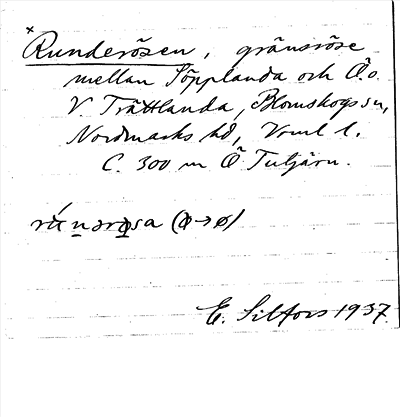 × Runderösen, gränsröse
mellan Töpplanda och Ö. o.
V. Trättlanda, Blomskogs sn,
Nordmarks hd, Vrml l.
C. 300 m Ö Tutjärn.
E. Silfors 1937.